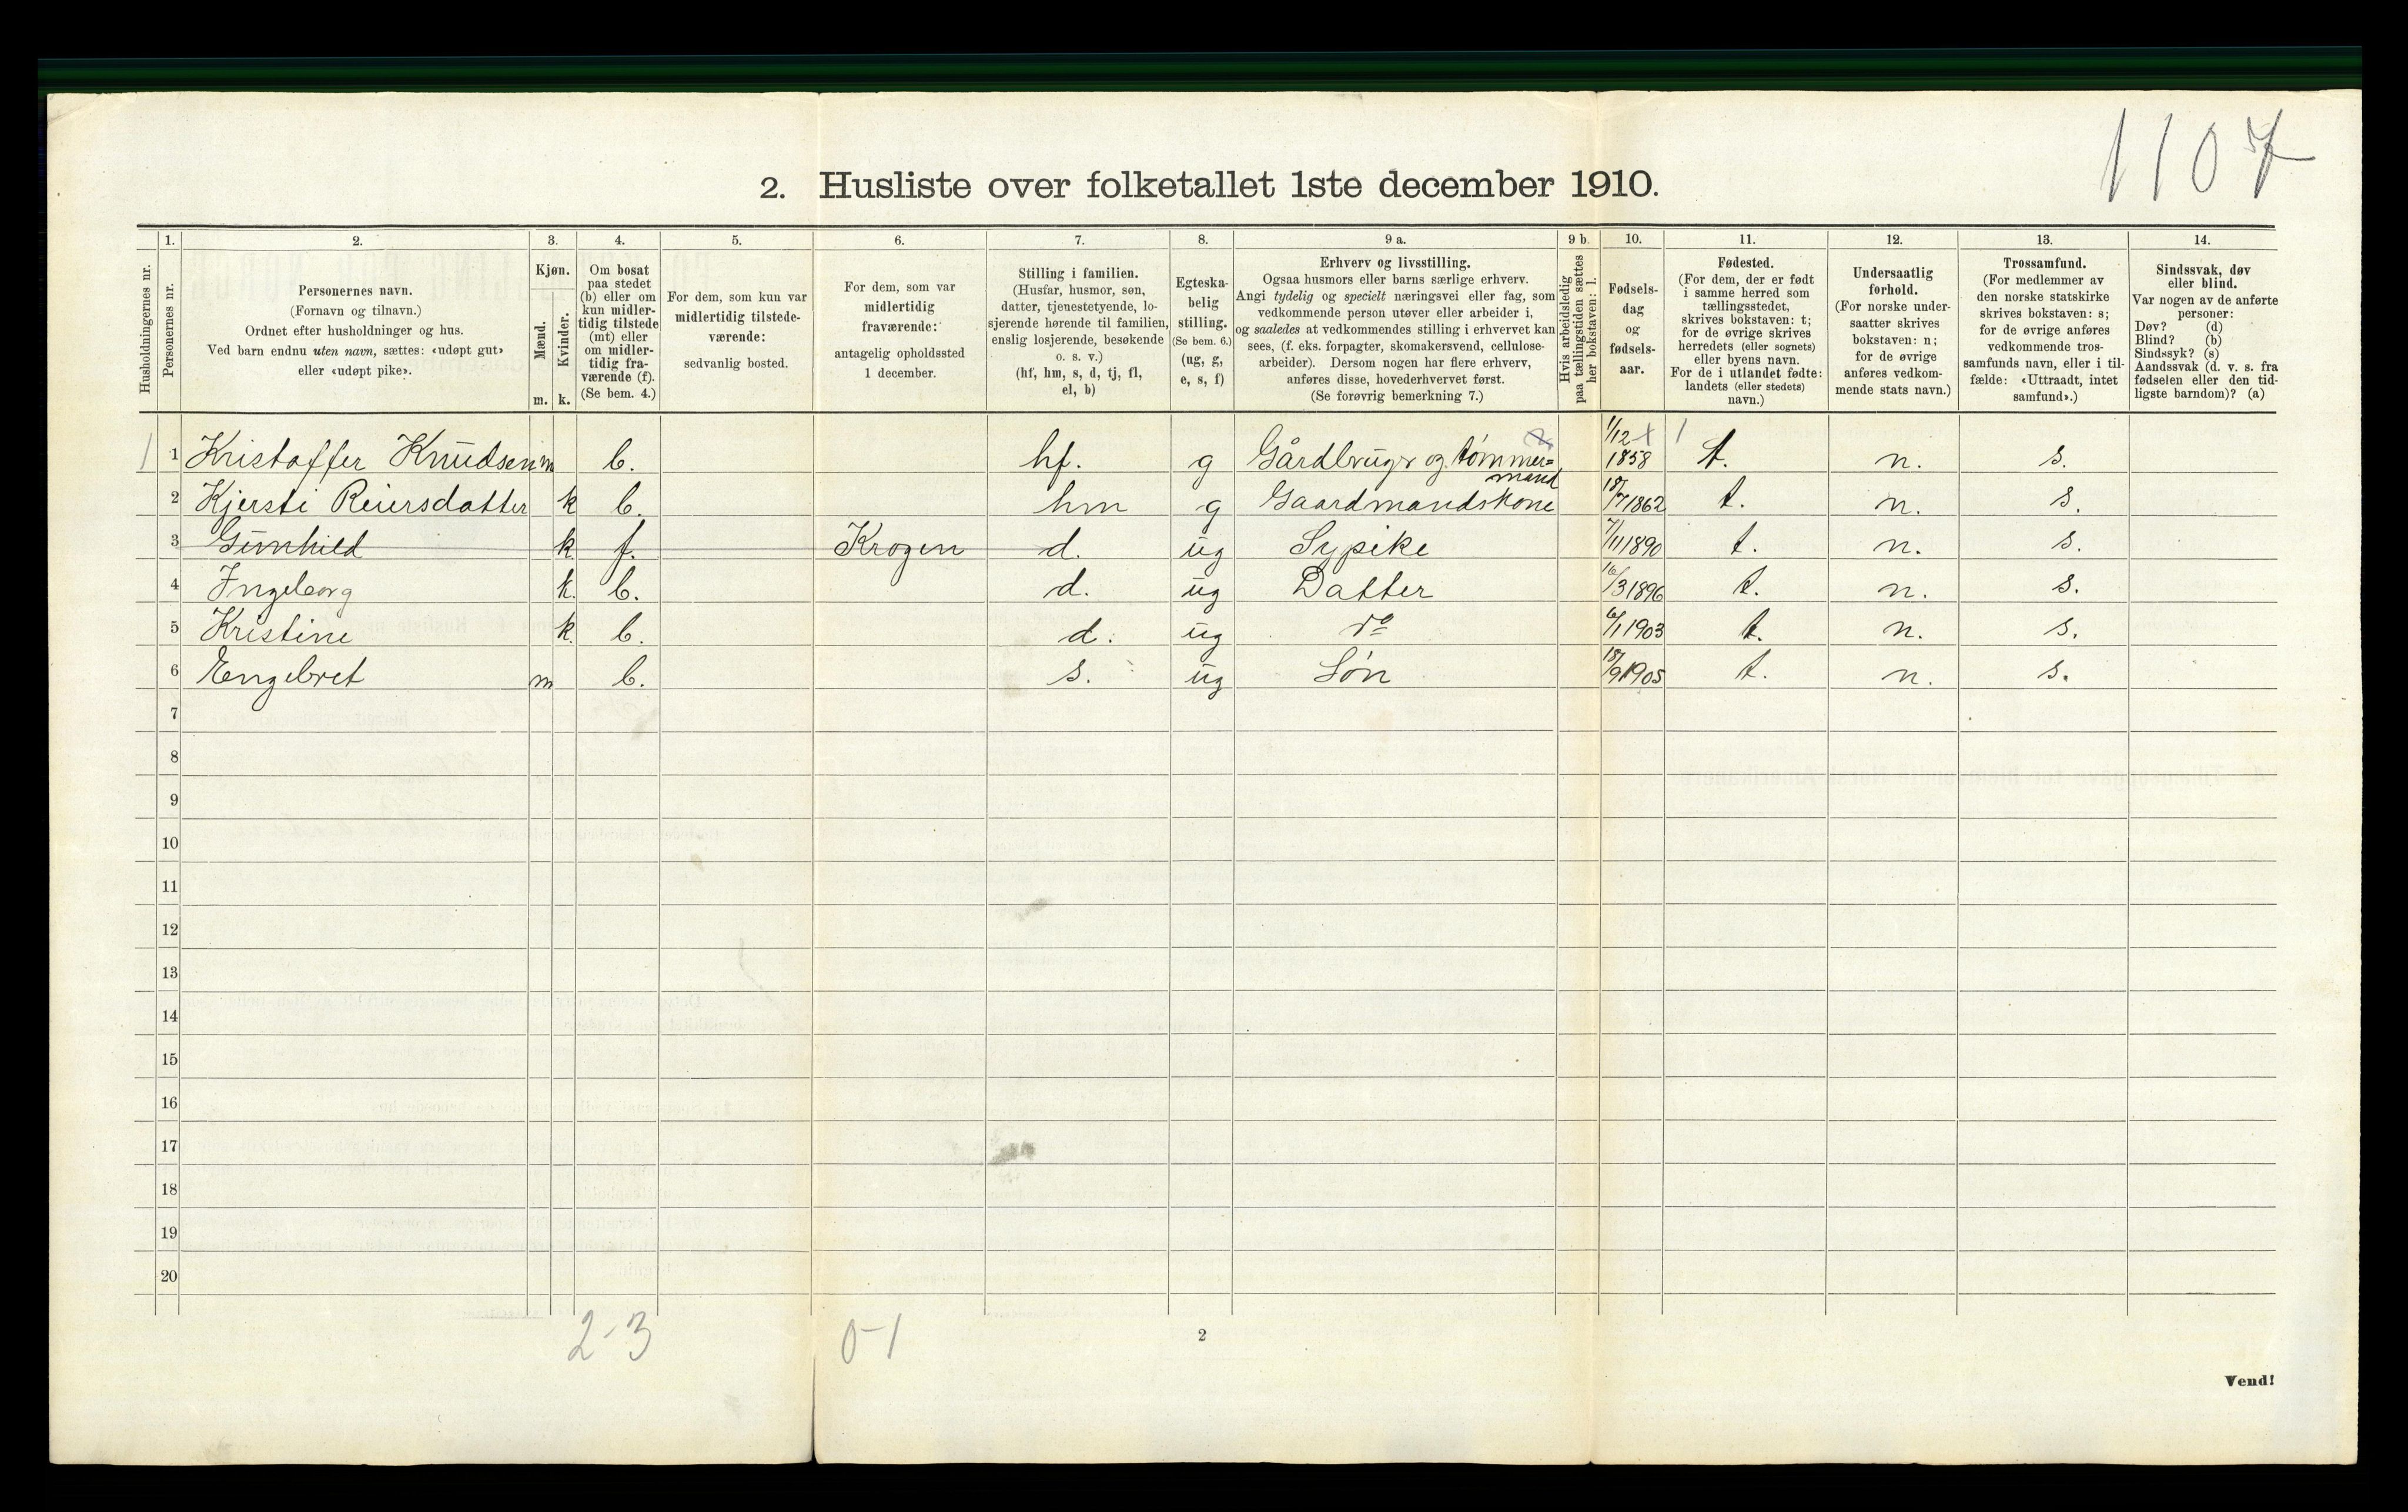 1107
2. Husliste over folketallet 1ste december 1910.
Husholdningernes nr.
1.
Personernes nr.
2.
Personernes navn.
(Fornavn og tilnavn.)
Ordnet efter husholdninger og hus.
Ved barn endnu uten navn, sættes: «udøpt gut»
eller «udøpt pike».
3.
Kjøn.
Mænd.
Kvinder.
m. k.
4.
Om bosat
paa stedet
(b) eller om
kun midler-
tidig tilstede
(mt) eller
om midler-
tidig fra-
værende (f).
(Se bem. 4.)
5.
For dem, som kun var
midlertidig tilstede-
værende:
sedvanlig bosted.
6.
For dem, som var
midlertidig
fraværende:
antagelig opholdssted
1 december.
7.
Stilling i familien.
(Husfar, husmor, søn,
datter, tjenestetyende, lo-
sjerende hørende til familien,
enslig losjerende, besøkende
o. s. v.)
(hf, hm, s, d, tj, fl,
el, b)
8.
Egteska-
belig
stilling.
(Se bem. 6.)
(ug, g,
e, s, f)
9 a.
Erhverv og livsstilling.
Ogsaa husmors eller barns særlige erhverv.
Angi tydelig og specielt næringsvei eller fag, som
vedkommende person utøver eller arbeider i,
og saaledes at vedkommendes stilling i erhvervet kan
sees, (f. eks. forpagter, skomakersvend, cellulose-
arbeider). Dersom nogen har flere erhverv,
anføres disse, hovederhvervet først.
(Se forøvrig bemerkning 7.)
9 b.
Hvis arbeidsledig
paa tællingstiden sættes
her bokstaven: l.
10.
Fødsels-
dag
og
fødsels-
aar.
11.
Fødested.
(For dem, der er født
i samme herred som
tællingsstedet,
skrives bokstaven: t;
for de øvrige skrives
herredets (eller sognets)
eller byens navn.
For de i utlandet fødte:
landets (eller stedets)
navn.)
12.
Undersaatlig
forhold.
(For norske under-
saatter skrives
bokstaven: n;
for de øvrige
anføres vedkom-
mende stats navn.)
13.
Trossamfund.
(For medlemmer av
den norske statskirke
skrives bokstaven: s;
for de øvrige anføres
vedkommende tros-
samfunds navn, eller i til-
fælde: «Uttraadt, intet
samfund».)
14.
Sindssvak, døv
eller blind.
Var nogen av de anførte
personer:
Døv? (d)
Blind? (b)
Sindssyk? (s)
Aandssvak (d. v. s. fra
fødselen eller den tid-
ligste barndom)? (a)
1 1 Kristoffer Knudsen m b. hf. g Gårdbruger og tømmer=mand 1/12 1858 t. n. s.
2 Kjersti Reiersdatter k b. hm g Gaardmandskone 18/7 1862 t. n. s.
3 Gunhild k. f. Krogen d. ug Sypike 7/11 1890 t. n. s.
4 Ingeborg k. b. d. ug Datter 16/3 1896 t. n. s.
5 Kristine k. b. d. ug do 6/1 1903 t. n. s.
6 Engebret m b. s. ug Søn 18/9 1905 t. n. s.
7
8
9
10
11
12
13
14
15
16
17
18
19
20
2-3 0-1
2
Vend!